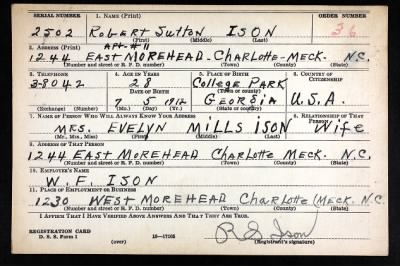 SERIAL NUMBER 1. NAME (Print) ORDER NUMBER
2502 ROBERT SUTTON ISON 36
(First) (Middle) (Last)
2. ADDRESS (Print) APT-#11
1244 EAST MOREHEAD-CHARLOTTE-MECK. N.C.
(Number and street or R. F. D. number) (Town) (County) (State)
3. TELEPHONE 4. AGE IN YEARS 5. PLACE OF BIRTH 6. COUNTRY OF CITIZENSHIP
3-8042 28 COLLEGE PARK
DATE OF BIRTH (Town or county)
7 5 1912 GEORGIA U.S.A.
(Exchange) (Number) (Mo.) (Day) (Yr.) (State or country)
7. NAME OF PERSON WHO WILL ALWAYS KNOW YOUR ADDRESS 8. RELATIONSHIP OF THAT PERSON
MRS. EVELYN MILLS ISON WIFE
(Mr., Mrs., Miss) (First) (Middle) (Last)
9. ADDRESS OF THAT PERSON
1244 EAST MOREHEAD CHARLOTTE MECK. N.C.
(Number and street or R. F. D. number) (Town) (County) (State)
10. EMPLOYER'S NAME
W. F. ISON
11. PLACE OF EMPLOYMENT OR BUSINESS
1230 WEST MOREHEAD CHARLOTTE MECK. N.C.
(Number and street or R. F. D. number) (Town) (County) (State)
I AFFIRM THAT I HAVE VERIFIED ABOVE ANSWERS AND THAT THEY ARE TRUE.
REGISTRATION CARD
D. S. S. Form 1 (over) 16-17105 R S Ison
(Registrant's signature)